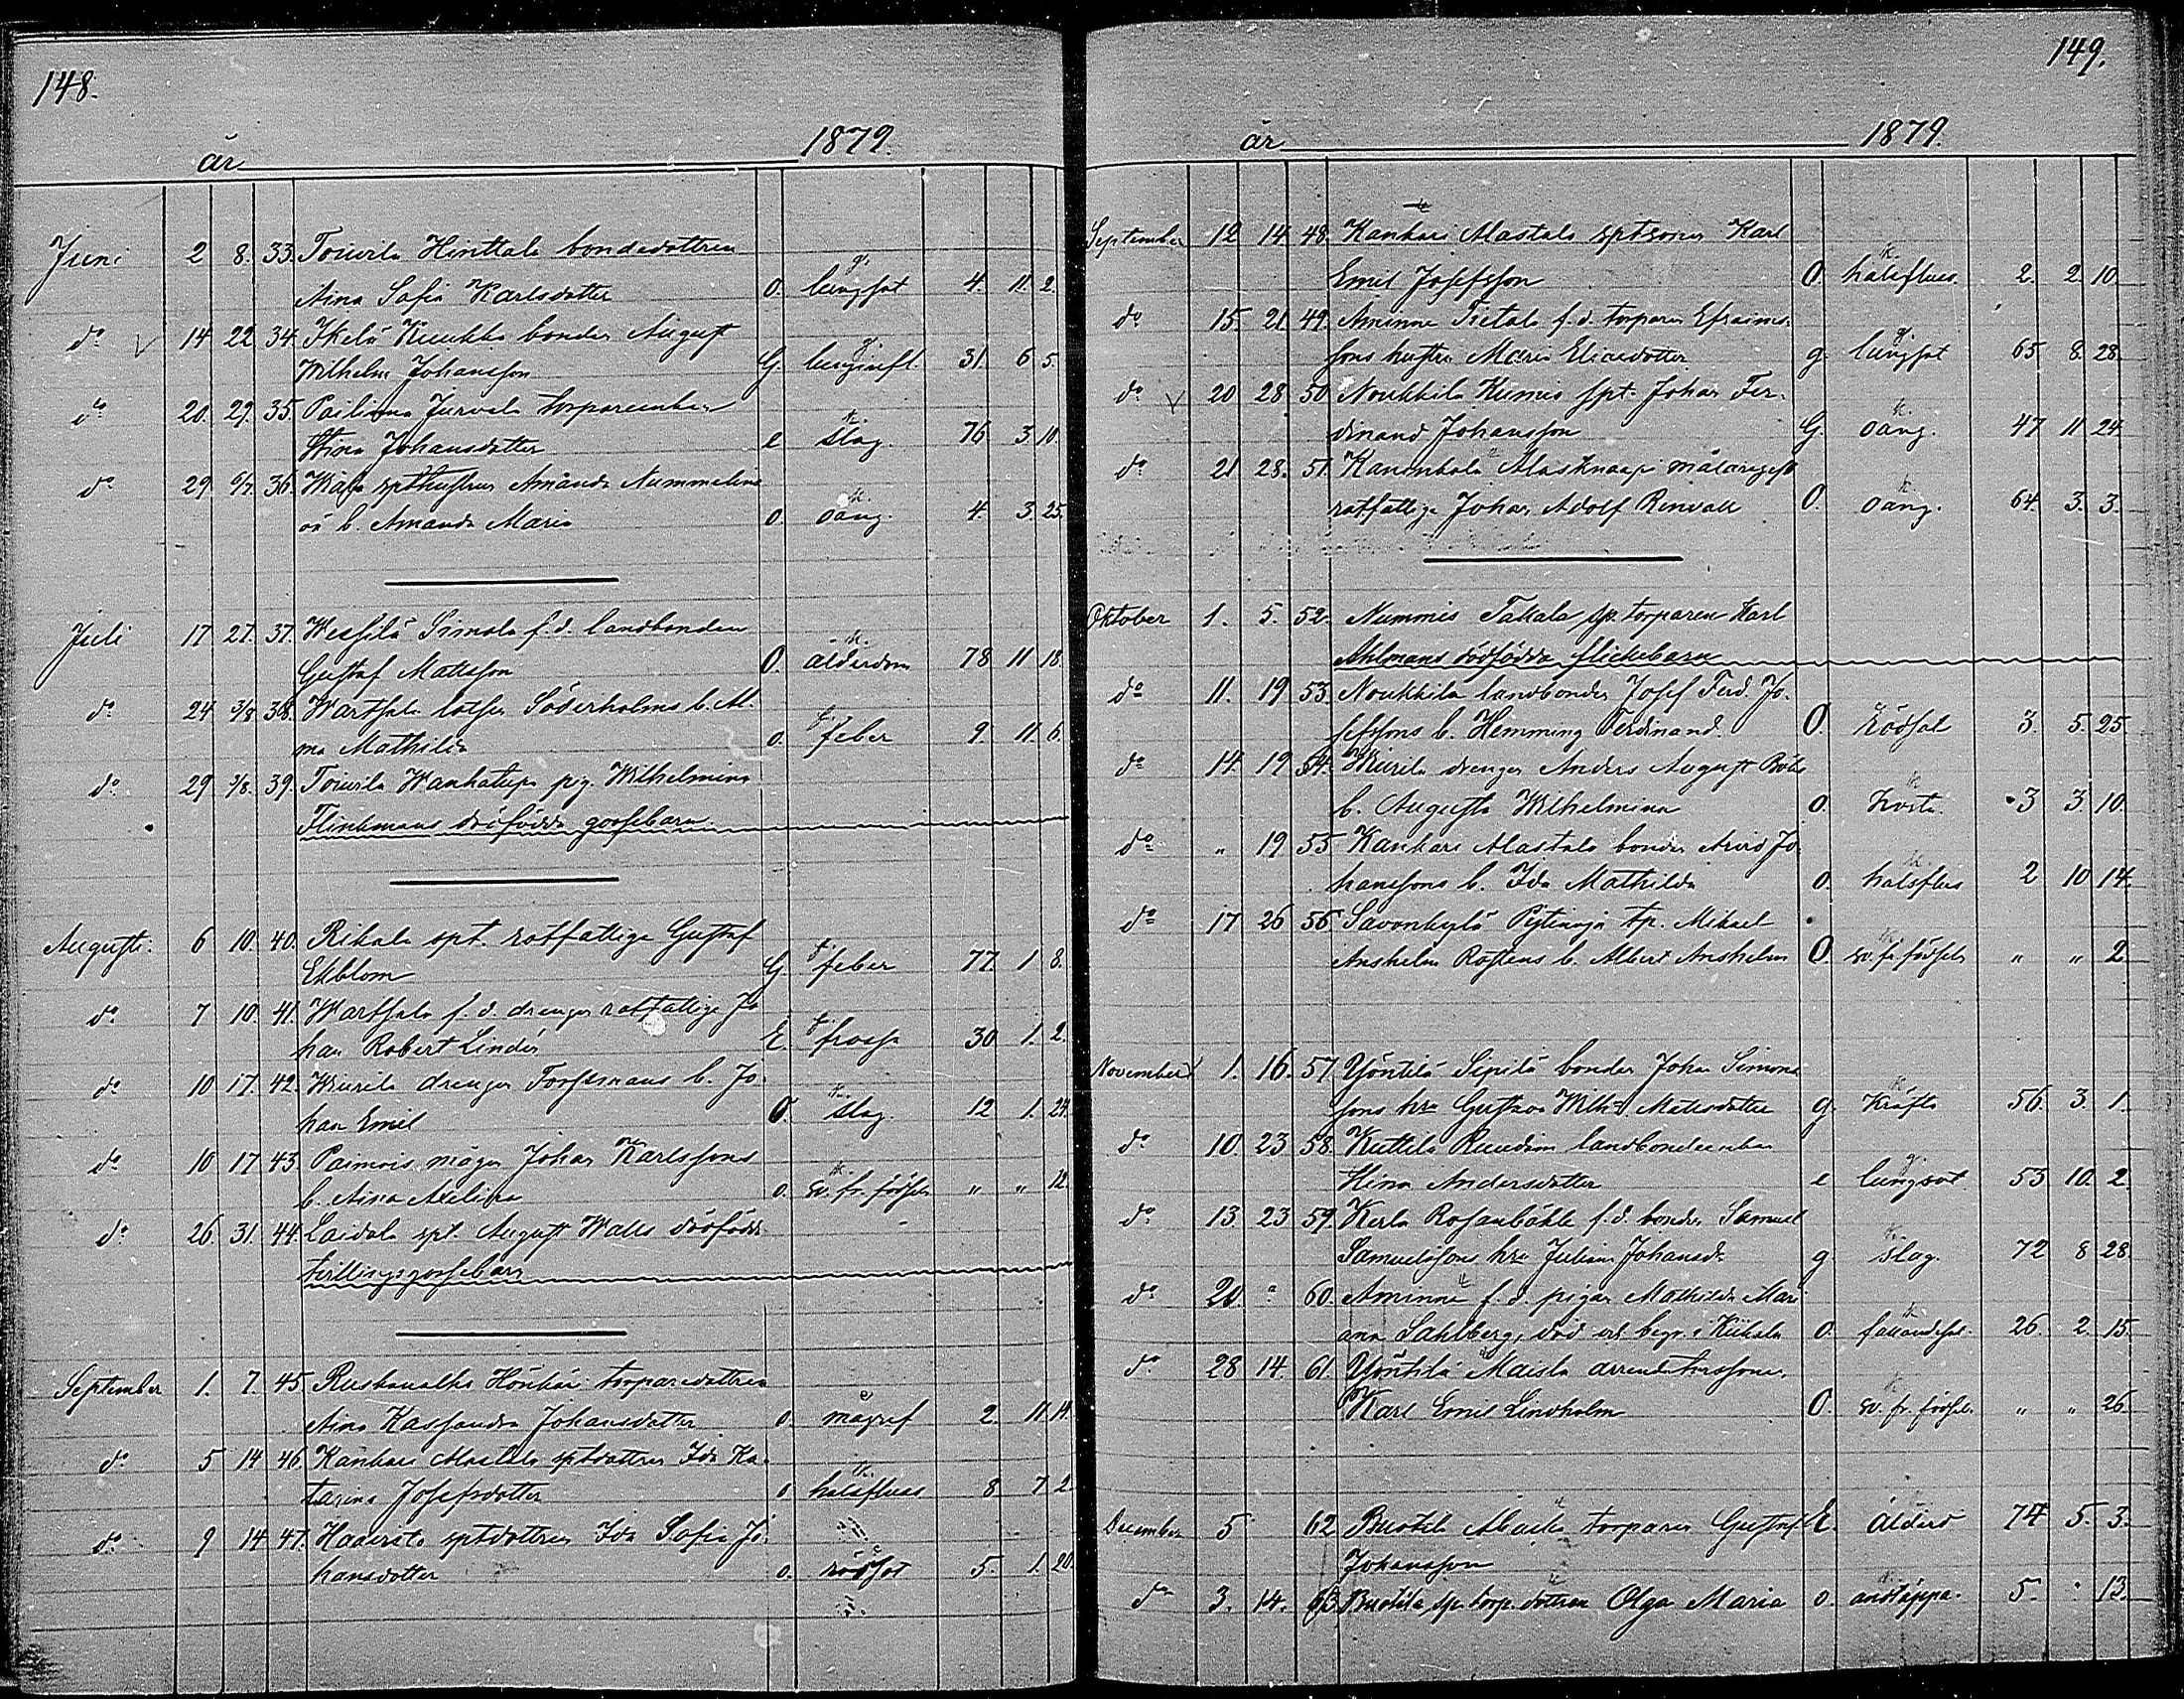 148.
år 1879.
Juni 2 8. 33. Toiurila Hinttala bondedottren
Aina Sofia Karlsdotter o. lungsot 4. 11. 2.
do 14 22 34. Ikelä Kuukka bonden August
Wilhelm Johansson G. lunginfl. 31. 6 5.
do 20. 29. 35. Pailinna Jurvala torpareenkan
Stina Johansdotter e slag. 76 3. 10.
do 29. 6/7. 36. spthustrun Amanda Nummelins
oä b. Amanda Maria o. oäng. 4. 3. 25.
Juli 17 27. 37. Wessilä Simola f. d. landbonden
Gustaf Mattsson O. ålderdom 78 11 18.
do 24 3/8 38. Wartsala lotsen Söderholms b. Al-
ma Mathilda o. feber 9. 11. 6.
do 29 3/8. 39. Toiurila Wanhatupa pig. Wilhelmina
Flinkmans dödfödda gossebarn.
Augusti. 6 10. 40. Rikala spt. rotfattige Gustaf
Ekblom G. feber 77. 1 8.
do 7 10. 41. Wartsala f. d. drengen rotfattige Jo
han Robert Lindén E. frossa 30 1. 2.
do 10 17. 42. Wiurila drengen Forssmans b. Jo-
han Emil O. slag. 12. 1. 24.
do 10 17 43. Paimois mågen Johan Karlssons
b. Aina Axelina o. sv. fr. födseln " " 12.
do 26. 31. 44. Laidola spt. August Walls dödfödda
tvillingsgossebarn
September 1. 7. 45. Ruskanalho Hönkäi torparedottren
Aina Kassandra Johansdotter o. magref 2. 11. 14.
do 5 14 46. Kankare Alastalo sptdottren Ida Ka-
tarina Josefsdotter o halsfluss 8 7 2
do 9 14 47. Haaerilo sptdottren Ida Sofia Jo-
hansdotter o. rödsot 5. 1. 20.
149.
år 1879.
September 12 14 48. Kankare Alastalo sptsonen Karl
Emil Josefsson O. halsfluss. 2. 2. 10.
do 15. 21. 49. Aminne Tietala f. d. torparen Efraims-
sons hustru Maria Eliaedotter g. lungsot 65 8. 28.
do 20 28 50. Noukkila Kumis spt. Johan Fer-
dinand Johansson G. oäng. 47 11 24.
do 21 28. 51. Kaninkola Alasknaapi målaregesäll
rotfattige Johan Adolf Renvall O. oäng. 64. 3. 3.
Oktober 1. 5. 52. Nummis Takala sp. torparen Karl
Ahlmans dödfödda flickebarn
do 11. 19 53. Noukkila landbonden Josef Ferd. Jo-
sefssons b. Hemming Ferdinand. O. Rödsot 3. 5. 25.
do 14. 19 54. Wiurila drengen Anders August
b. Augusta Wilhelmina o. Hosta. 3 3. 10.
do " 19 55 Kankare Alastalo bonden Arvid Jo-
hanssons b. Ida Mathilda o. halsfluss 2 10 14.
do 17 26 56 Savonkylä tp. Mikael
Anshelm Rostens b. Albert Anshelm O. sv. fr. födseln " " 2
November 1. 16. 57. Yöntilä Sipilä bonden Johan Simons-
sons hru Gustava Wilh:a Mattsdotter g. Kräfta 56. 3. 1.
do 10. 23 58. Kuttila landbondeenkan
Stina Andersdotter e lungsot 53 10. 2.
do 13. 23 59. Kerla Rosanbäkk f. d. bonden Samuel
Samuelssons hru Juliana Johansdr g. slag. 72 8 28.
do 20. " 60. Aminne f. d. pigan Mathilda Mari-
ana Sahlberg, död och begr. i Kiikala o. fallandesot. 26. 2. 15.
do 28 14. 61. Yöntilä Maisla arrendatorssonen.
Karl Emil Lindholm O. sv. fr. födseln " " 26.
December 5 62 Buotila torparen Gustaf E. Ålderd 74 5. 3.
Johansson
do 3. 14. 63. Buotila sp. torp. dottren Olga Maria o. andtäppa. 5. " 13.